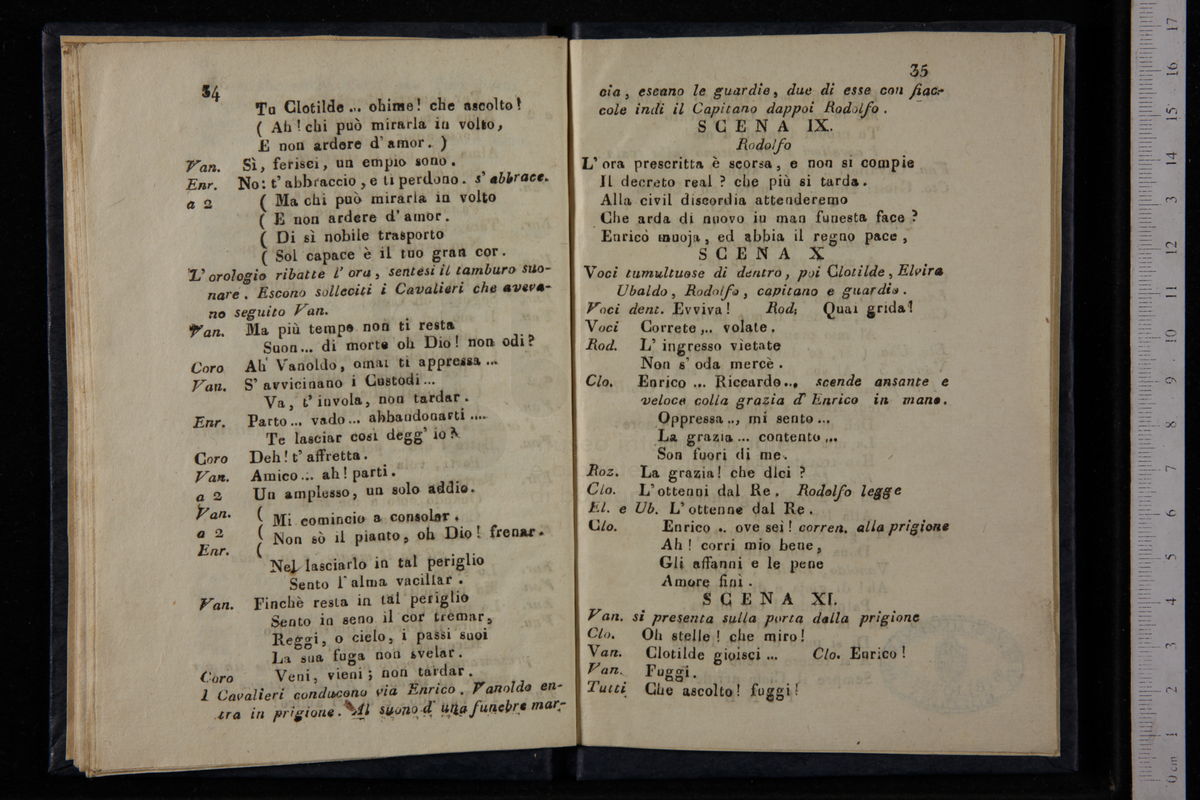 34
Tu Clotilde ... ohime! che ascolto!
( Ah! chi può mirarla in volto,
E non ardere d'amor. )
Van. Sì, ferisci, un empio sono.
Enr. No: t'abbraccio, e ti perdono. s'abbrace.
a 2 ( Ma chi può mirarla in volto
( E non ardere d'amor.
( Di sì nobile trasporto
( Sol capace è il tuo gran cor.
L'orologio ribatte l'ora, sentesi il tamburo suo-
nare. Escono solleciti i Cavalieri che aveva-
no seguito Van.
Van. Ma più tempo non ti resta
Suon... di morte oh Dio! non odi?
Coro Ah Vanoldo, omai ti appressa ...
Van. S'avvicinano i Custodi...
Va, t'invola, non tardar.
Enr. Parto... vado... abbandonarti ....
Te lasciar così degg'io?
Coro Deh! t'affretta.
Van. Amico... ah! parti.
a 2 Un amplesso, un solo addio.
Van. ( Mi comincio a consolar.
a 2 ( Non sò il pianto, oh Dio! frenar.
Enr. (
Nel lasciarlo in tal periglio
Sento l'alma vacillar.
Van. Finchè resta in tal periglio
Sento in seno il cor tremar,
Reggi, o cielo, i passi suoi
La sua fuga non svelar.
Coro Veni, vieni; non tardar.
I Cavalieri conducono via Enrico. Vanoldo en-
tra in prigione. Al suono d'una funebre mar-
35
cia, escano le guardie, due di esse con fiac-
cole indi il Capitano dappoi Rodolfo.
SCENA IX.
Rodolfo
L'ora prescritta è scorsa, e non si compie
Il decreto real? che più si tarda.
Alla civil discordia attenderemo
Che arda di nuovo in man funesta face?
Enricò muoja, ed abbia il regno pace,
SCENA X
Voci tumultuose di dentro, poi Clotilde, Elvira
Ubaldo, Rodolfo, capitano e guardie.
Voci dent. Evviva! Rod: Quai grida!
Voci Correte ... volate.
Rod. L'ingresso vietate
Non s'oda mercè.
Clo. Enrico ... Riccardo... scende ansante e
veloce colla grazia d'Enrico in mano.
Oppressa .., mi sento ...
La grazia ... contento ...
Son fuori di me.
Roz. La grazia! che dici?
Clo. L'ottenni dal Re. Rodolfo legge
El. e Ub. L'ottenne dal Re.
Clo. Enrico .. ove sei! corren. alla prigione
Ah! corri mio bene,
Gli affanni e le pene
Amore finì.
SCENA XI.
Van. si presenta sulla porta della prigione
Clo. Oh stelle! che miro!
Van. Clotilde gioisci ... Clo. Enrico!
Van. Fuggì.
Tutti Che ascolto! fuggì!